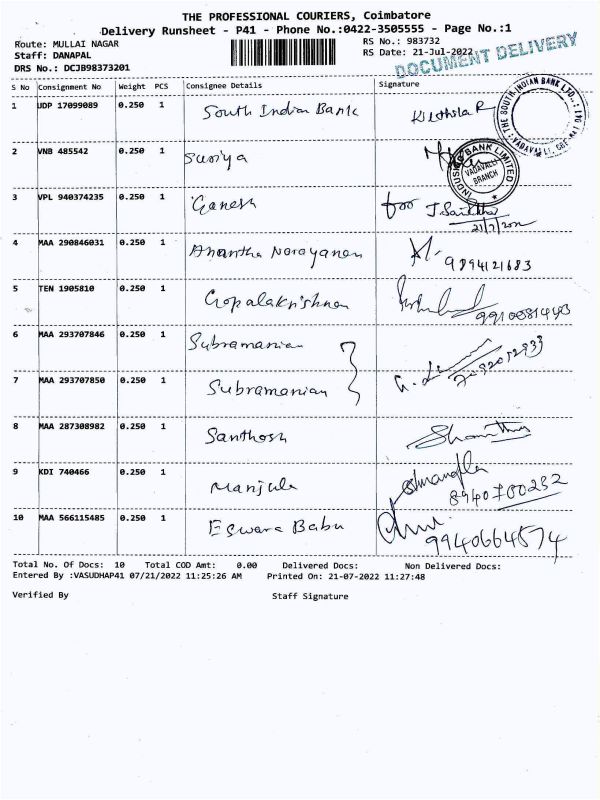 THE PROFESSIONAL COURIERS, Coimbatore
Delivery Runsheet - P41 - Phone No.:0422-3505555 - Page No.:1
Route: MULLAI NAGAR RS No.: 983732
Staff: DANAPAL RS Date: 21-Jul-2022
DRS No.: DCJB98373201
DOCUMENT DELIVERY
S No Consignment No Weight PCS Consignee Details Signature
1 UDP 17099089 0.250 1 South Indian Bank
THE SOUTH INDIAN BANK LTD.
VADAVALLI, CBE
2 VNB 485542 0.250 1 Suriya
INDUSIND BANK LIMITED
VADAVALLI
BRANCH
3 VPL 940374235 0.250 1 Ganesh for
21/7/2022
4 MAA 290846031 0.250 1 Anantha Narayanan 9894121683
5 TEN 1905810 0.250 1 Gopalakrishnan
6 MAA 293707846 0.250 1 Subramanian
7 MAA 293707850 0.250 1 Subramanian
8 MAA 287308982 0.250 1 Santhosh
9 KDI 740466 0.250 1 Manjula 8940700232
10 MAA 566115485 0.250 1 Eswara Babu 9940664574
Total No. Of Docs: 10 Total COD Amt: 0.00 Delivered Docs: Non Delivered Docs:
Entered By :VASUDHAP41 07/21/2022 11:25:26 AM Printed On: 21-07-2022 11:27:48
Verified By Staff Signature